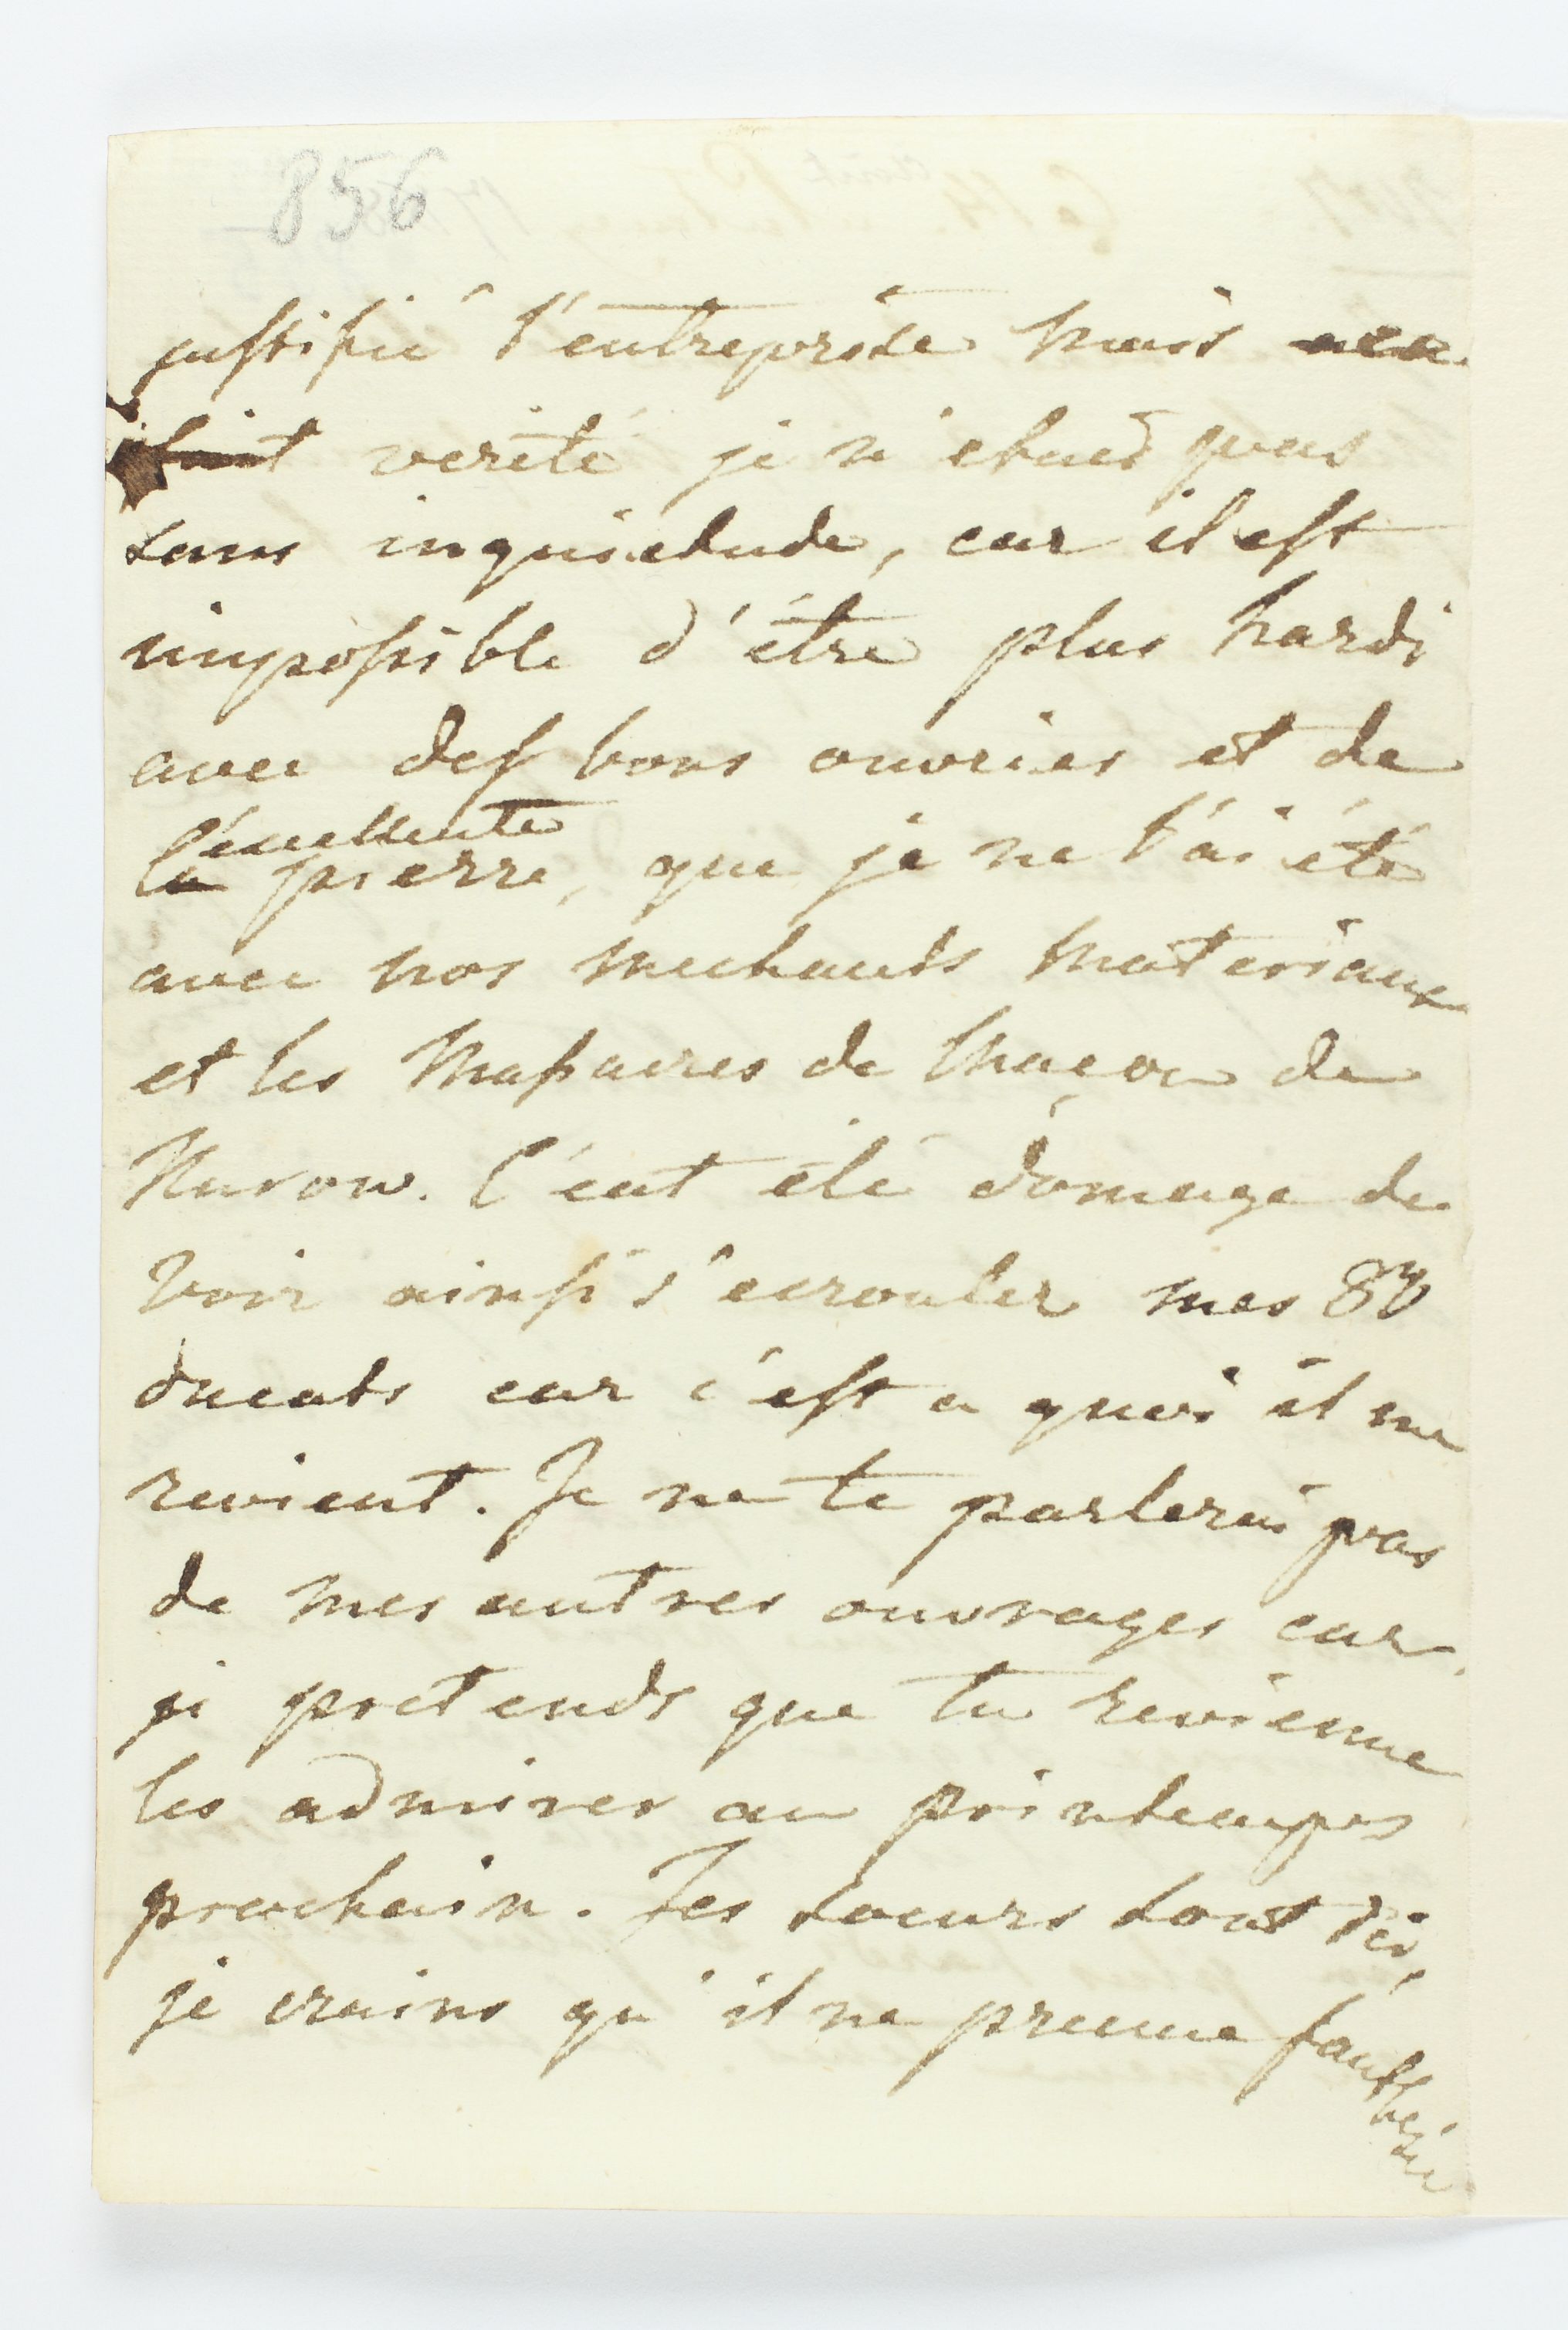 856
justifié l'entreprise mais
verité je n'etais pas
sans inquietude, car il est
impossible d'étre plus hardi
avec des bons ouvriers et de
l'éxcellente
la pierre, que je ne l'ai été
avec nos mechants materiaux
et les Massacres de Maçon de
Kurow. C'eut été domage de
voir ainsi s'ecrouler mes 80
ducats car c'est a quoi il me
revient. Je ne te parlerai pas
de mes autres ouvrages car
je pretends que tu revienne
les admirer au printemps
prochain. Tes soeurs sont ici,
je crains qu'il ne prenne